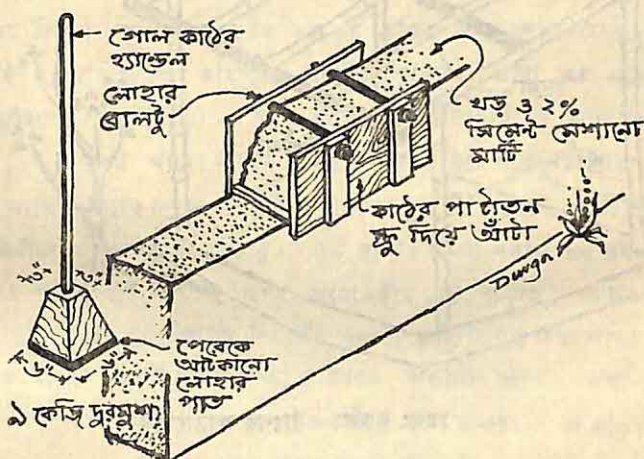 গোল কাঠের
হ্যান্ডেল
লোহার
বোলটু
খড় ও ২%
সিমেন্ট মেশানো
মাটি
কাঠের পাটাতন
স্ক্রু দিয়ে আঁটা
Durga
৩" ৩"
৬"
পেরেকে
আটকানো
লোহার
পাত
৯ কেজি দুরমুশ